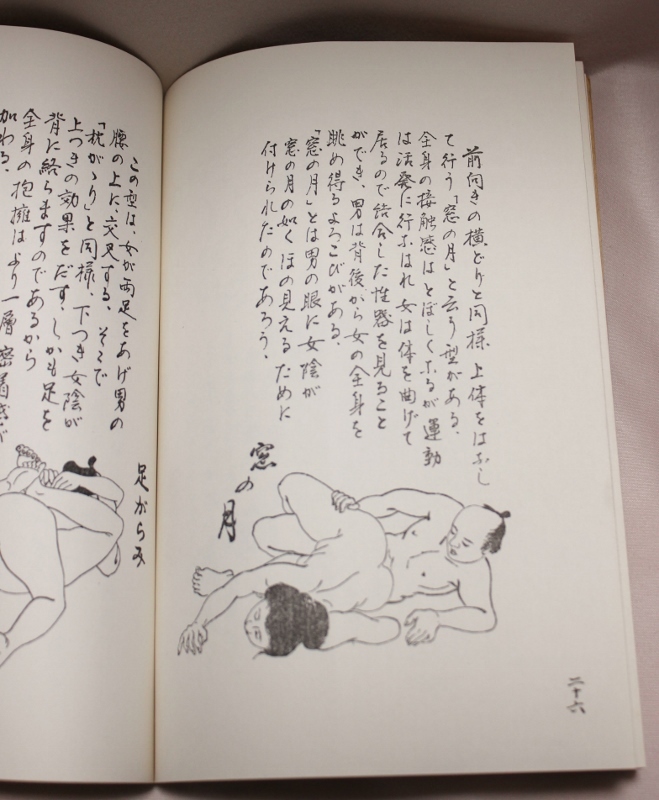 前向きの横どりと同様、上体をはなし
て行う「窓の月」と云う型がある、
全身の接触感はとぼしくなるが運動
は活発に行なはれ女は体を曲げて
居るので結合した性器を見ること
ができ、男は背後から女の全身を
眺め得るよろこびがある、
「窓の月」とは男の眼に女陰が
窓の月の如くほの見えるために
付けられたのであろう、
窓の月
二十六
この型は、女が両足をあげ男の
腰の上に、交叉する、そこで
「枕がゝり」と同様、下つき女陰が
上つきの効果をだす、しかも足を
背に絡らますのであるから
全身の抱擁はより一層密着感が
加わる、
足がらみ